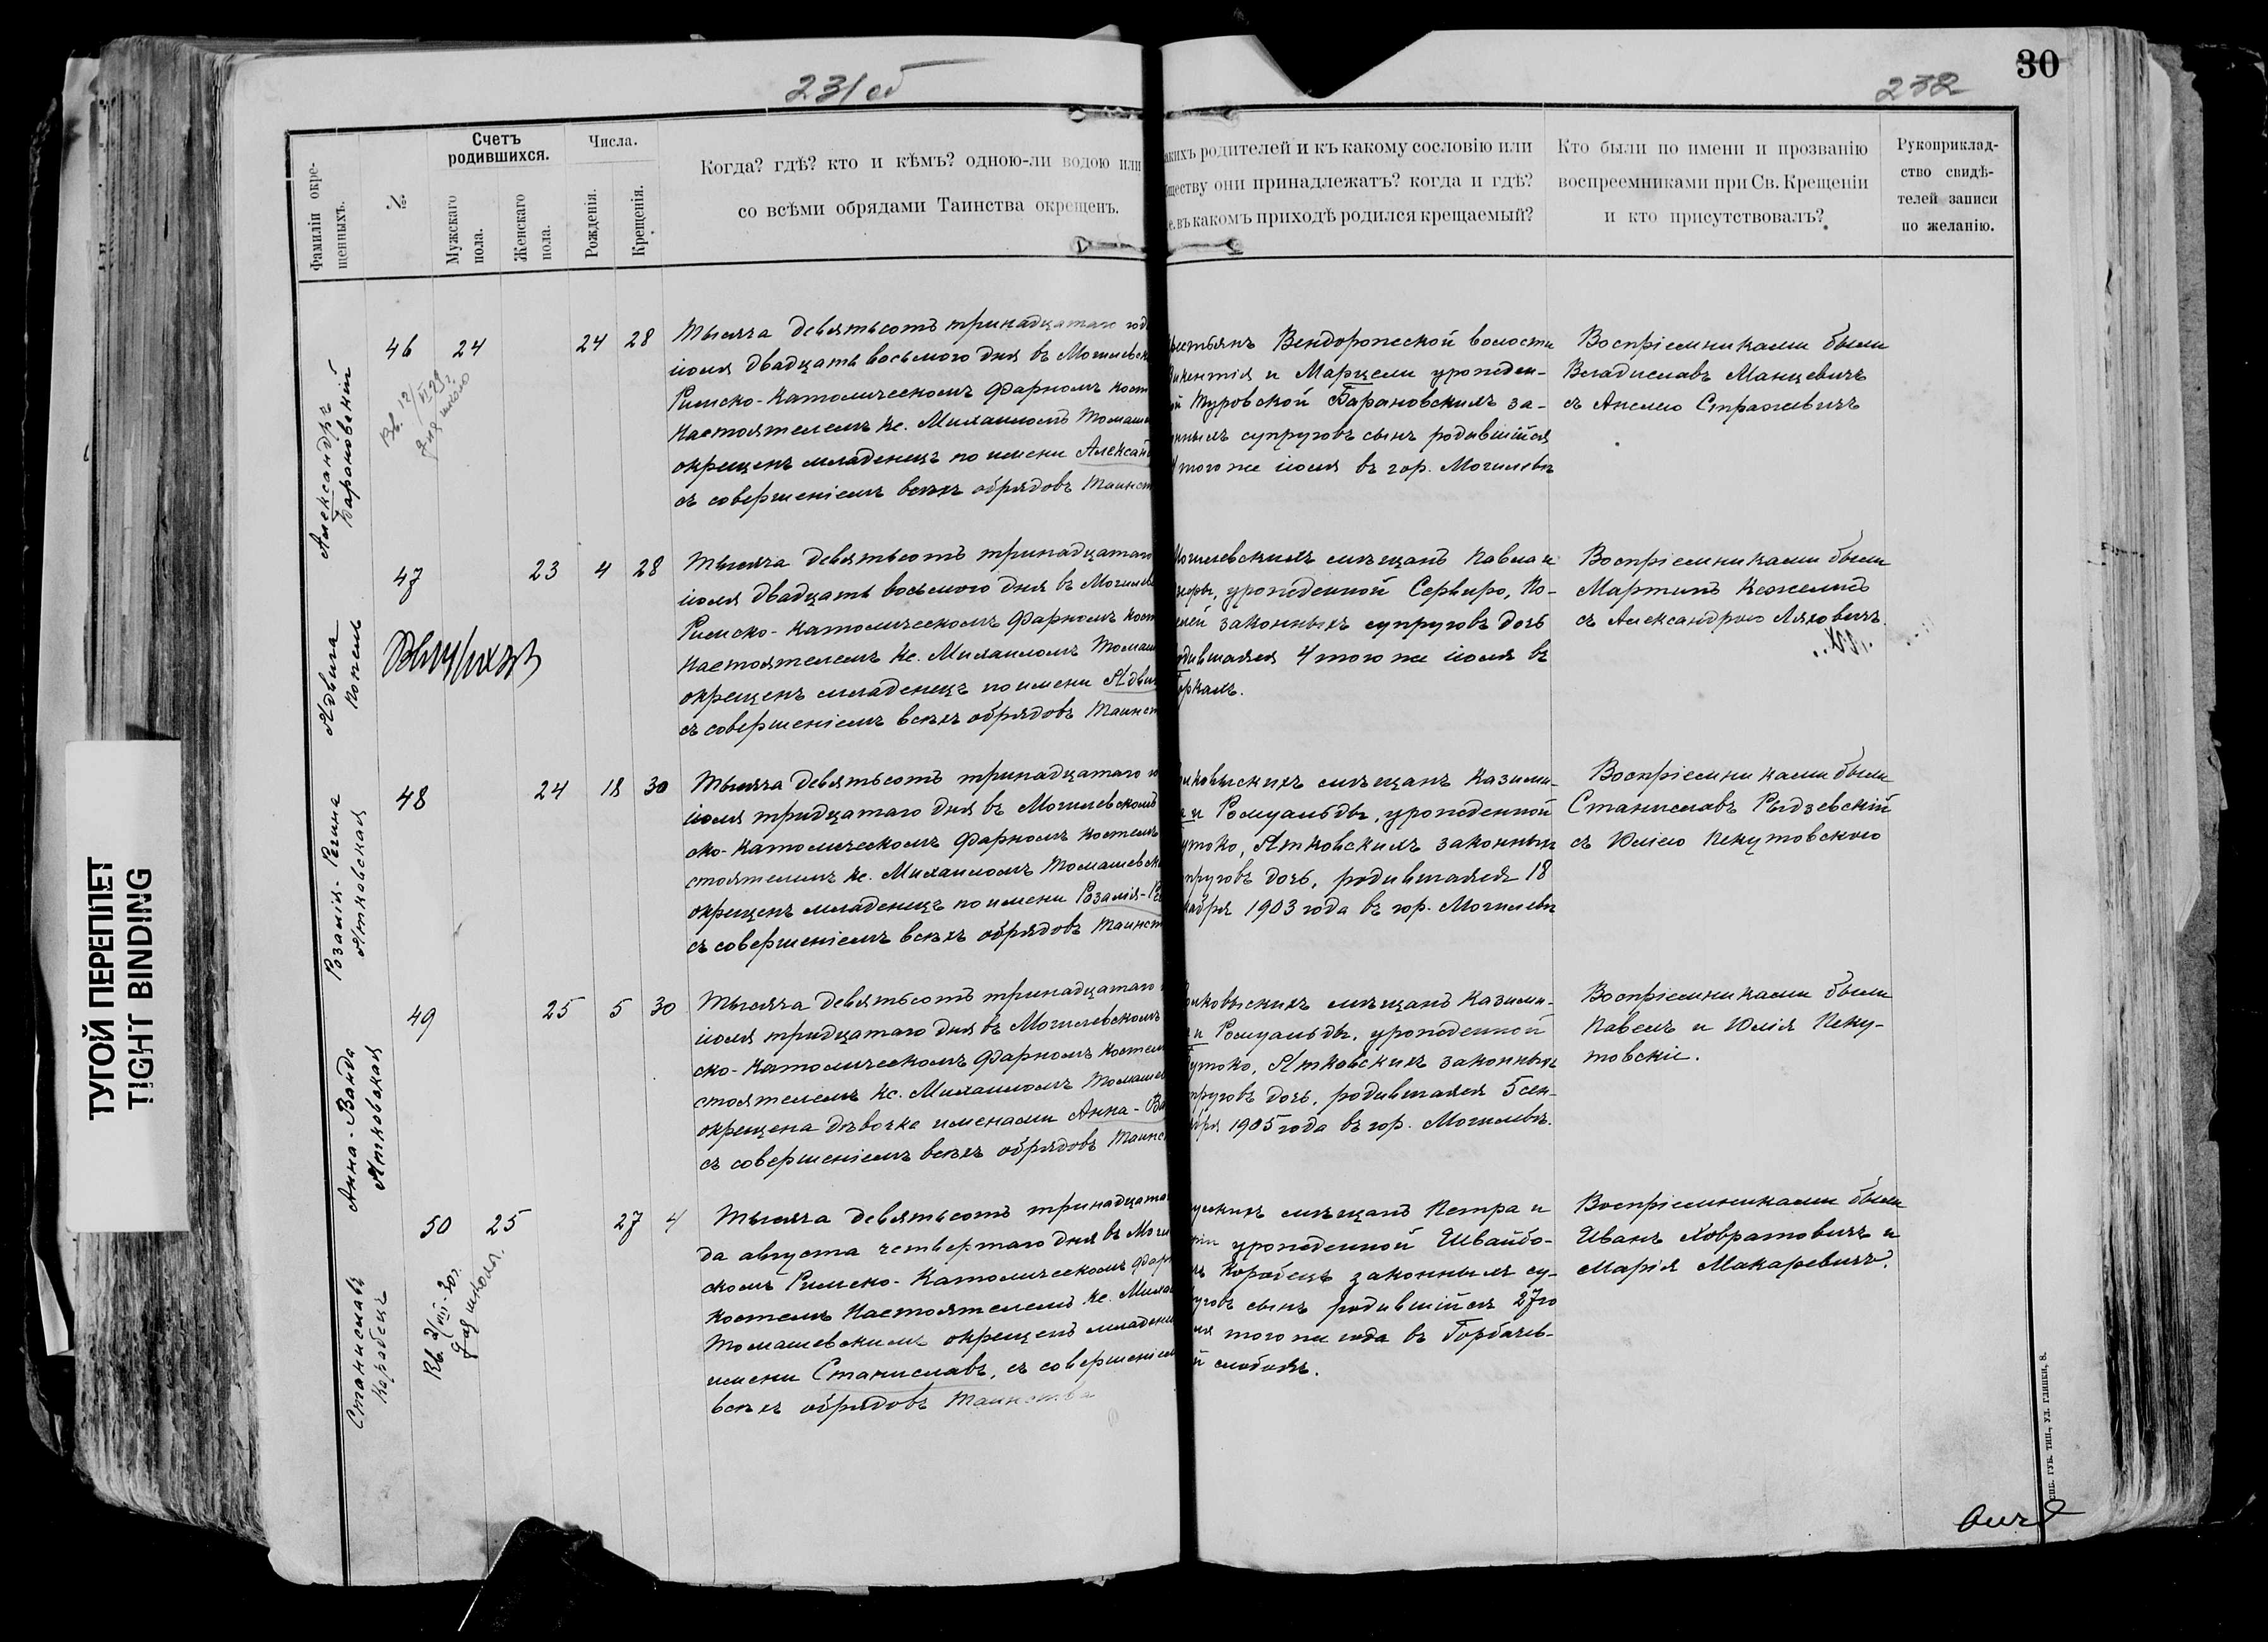 231 об
232
30
Фамиліи окре-
щенныхъ.
№
Счетъ
родившихся.
Мужскаго
пола.
Женскаго
пола.
Числа.
Рожденія.
Крещенія.
Когда? гдѣ? кто и кѣмъ? одною-ли водою или
со всѣми обрядами Таинства окрещенъ.
акихъ родителей и къ какому сословію или
ществу они принадлежатъ? когда и гдѣ?
е. въ какомъ приходѣ родился крещаемый?
Кто были по имени и прозванію
воспреемниками при Св. Крещеніи
и кто присутствовалъ?
Рукоприклад-
ство свидѣ-
телей записи
по желанію.
Александръ
Барановскій
46
24
24
28
Вв. 12/VI 29 г.
для школ
Тысяча девятьсотъ тринадцатаго год
іюля двадцать восьмого дня въ Могилевск
Римско-Католическомъ Фарномъ кост
Настоятелемъ Кс. Михаиломъ Томаш
окрещенъ младенецъ по имени Алексан
съ совершеніемъ всѣхъ обрядовъ Таинст
рестьянъ Вендорожской волости
икентія и Марцели урожден-
й Туровской Барановскихъ за-
нныхъ супруговъ сынъ родившійся
того же іюля въ гор. Могилевѣ
Воспріемниками были
Владиславъ Манцевичъ
съ Анелею Стражевичъ
Ядвига
Кожель
47
23
4
28
Тысяча девятьсотъ тринадцатаго
іюля двадцать восьмого дня въ Могилев
Римско-Католическомъ Фарномъ кост
Настоятелемъ Кс. Михаиломъ Томаш
окрещенъ младенецъ по имени Ядви
съ совершеніемъ всѣхъ обрядовъ Таинст
Могилевскихъ мѣщанъ Павла и
урожденной Сервиро, Ко-
елей законныхъ супруговъ дочь
одившаяся 4 того же іюля въ
оркахъ.
Воспріемниками были
Мартинъ Кежелисъ
съ Александрою Ляховичъ.
Розалія-Регина
Ятковская
48
24
18
30
Тысяча девятьсотъ тринадцатаго
іюля тридцатаго дня въ Могилевскомъ
ско-Католическомъ Фарномъ костелѣ
стоятелемъ Кс. Михаиломъ Томашевск
окрещенъ младенецъ по имени Розалія-Ре
съ совершеніемъ всѣхъ обрядовъ Таинст
лковыскихъ мѣщанъ Казими-
а и Ромуальды, урожденной
утоко, Ятковскихъ законныхъ
пруговъ дочь, родившаяся 18
кабря 1903 года въ гор. Могилевѣ
Воспріемниками были
Станиславъ Рыдзевскій
съ Юліею Пекутовскою
Анна-Ванда
Ятковская
49
25
5
30
Тысяча девятьсотъ тринадцатаго
іюля тридцатаго дня въ Могилевскомъ
ско-Католическомъ Фарномъ костел
стоятелемъ Кс. Михаиломъ Томашев
окрещена дѣвочка именами Анна-Ва
съ совершеніемъ всѣхъ обрядовъ Таинс
олковыскихъ мѣщанъ Казими-
и Ромуальды, урожденной
утоко, Ятковскихъ законныхъ
пруговъ дочь, родившаяся 5 сен-
ября 1905 года въ гор. Могилевѣ.
Воспріемниками были
Павелъ и Юлія Пеку-
товскіе.
Станиславъ
Коробецъ
50
25
27
4
Вв. 2/VIII-30 г.
для школы.
Тысяча девятьсотъ тринадцата
да августа четвертаго дня въ Моги
скомъ Римско-Католическомъ Фарн
костелѣ Настоятелемъ Кс. Миха
Томашевскимъ окрещенъ младене
имени Станиславъ, съ совершеніем
всѣхъ обрядовъ Таинства
мѣщанъ Петра и
урожденной Швайбо-
ъ Коробецъ законныхъ су-
уговъ сынъ родившійся 27 го
ля того же года въ Горбачев-
й слободѣ.
Воспріемниками были
Иванъ Ховратовичъ и
Марія Макаревичъ.
ТУГОЙ ПЕРЕПЛЕТ
TIGHT BINDING
СПБ. ГУБ. ТИП., УЛ. ГЛИНКИ, 8.